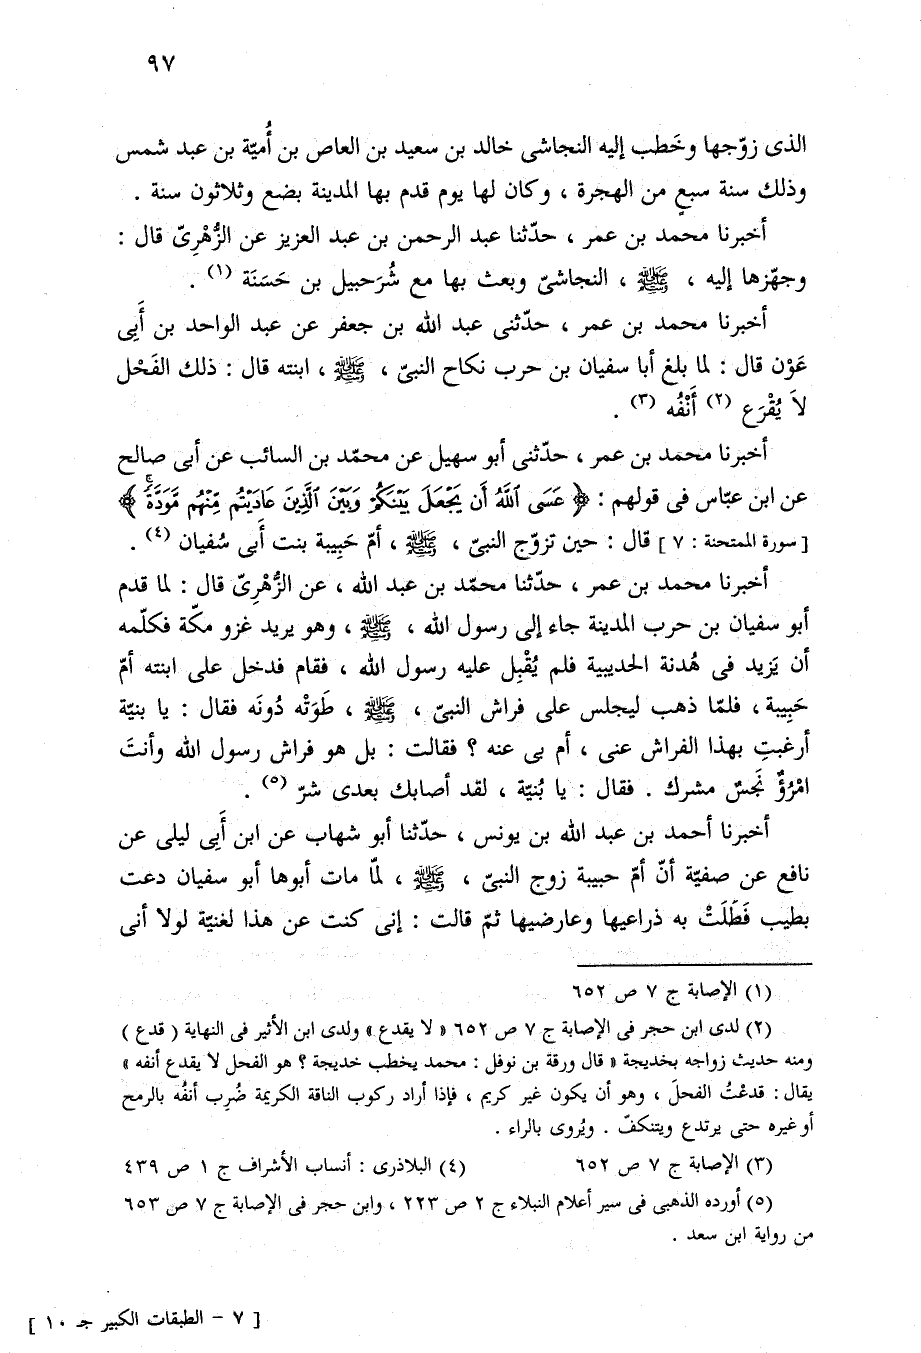 ٩٧
الذى زوّجها وخَطب إليه النجاشى خالد بن سعيد بن العاص بن أُميّة بن عبد شمس
وذلك سنة سبعٍ من الهجرة ، وكان لها يوم قدم بها المدينة بضع وثلاثون سنة .
أخبرنا محمد بن عمر ، حدّثنا عبد الرحمن بن عبد العزيز عن الزُّهْرِىّ قال :
وجهّزها إليه ، ﷺ ، النجاشىّ وبعث بها مع شُرَحبيل بن حَسَنَة (١) .
أخبرنا محمد بن عمر ، حدّثنى عبد الله بن جعفر عن عبد الواحد بن أَبِى
عَوْن قال : لما بلغ أبا سفيان بن حرب نكاح النبىّ ، ﷺ ، ابنته قال : ذلك الفَحْل
لاَ يُقْرَع (٢) أَنْفُه (٣) .
أخبرنا محمد بن عمر ، حدّثنى أبو سهيل عن محمّد بن السائب عن أبى صالح
عن ابن عبّاس فى قولهم : ﴿ عَسَى ٱللَّهُ أَن يَجْعَلَ بَيْنَكُمْ وَبَيْنَ ٱلَّذِينَ عَادَيْتُم مِّنْهُم مَّوَدَّةًۚ ﴾
[ سورة الممتحنة : ٧ ] قال : حين تزوّج النبىّ ، ﷺ ، أمّ حَبِيبة بنت أَبى سُفيان (٤) .
أخبرنا محمد بن عمر ، حدّثنا محمّد بن عبد الله ، عن الزُّهْرِىّ قال : لما قدم
أبو سفيان بن حرب المدينة جاء إلى رسول الله ، ﷺ ، وهو يريد غزو مكّة فكلّمه
أن يَزيد فى هُدنة الحديبية فلم يُقْبِل عليه رسول الله ، فقام فدخل على ابنته أمّ
حَبِيبة ، فلمّا ذهب ليجلس على فراش النبىّ ، ﷺ ، طَوَتْه دُونَه فقال : يا بنيّة
أرغبتِ بهذا الفراش عنى ، أم بى عنه ؟ فقالت : بل هو فراش رسول الله وأنتَ
امْرُؤٌ نَجَسٌ مشرك . فقال : يا بُنيّة ، لقد أصابك بعدى شرّ (٥) .
أخبرنا أحمد بن عبد الله بن يونس ، حدّثنا أبو شهاب عن ابن أَبِى ليلى عن
نافع عن صفيّة أنّ أمّ حبيبة زوج النبىّ ، ﷺ ، لمّا مات أبوها أبو سفيان دعت
بطيب فَطَلَتْ به ذراعيها وعارضيها ثمّ قالت : إنى كنت عن هذا لغنيّة لولا أنى
(١) الإصابة ج ٧ ص ٦٥٢
(٢) لدى ابن حجر فى الإصابة ج ٧ ص ٦٥٢ « لا يقدع » ولدى ابن الأثير فى النهاية ( قدع )
ومنه حديث زواجه بخديجة « قال ورقة بن نوفل : محمد يخطب خديجة ؟ هو الفحل لا يقدع أنفه »
يقال : قدعْتُ الفحلَ ، وهو أن يكون غير كريم ، فإذا أراد ركوب الناقة الكريمة ضُرِب أنفُه بالرمح
أو غيره حتى يرتدع ويتنكفّ . ويُروى بالراء .
(٣) الإصابة ج ٧ ص ٦٥٢ (٤) البلاذرى : أنساب الأشراف ج ١ ص ٤٣٩
(٥) أورده الذهبى فى سير أعلام النبلاء ج ٢ ص ٢٢٣ ، وابن حجر فى الإصابة ج ٧ ص ٦٥٣
من رواية ابن سعد .
[ ٧ – الطبقات الكبير جـ ١٠ ]